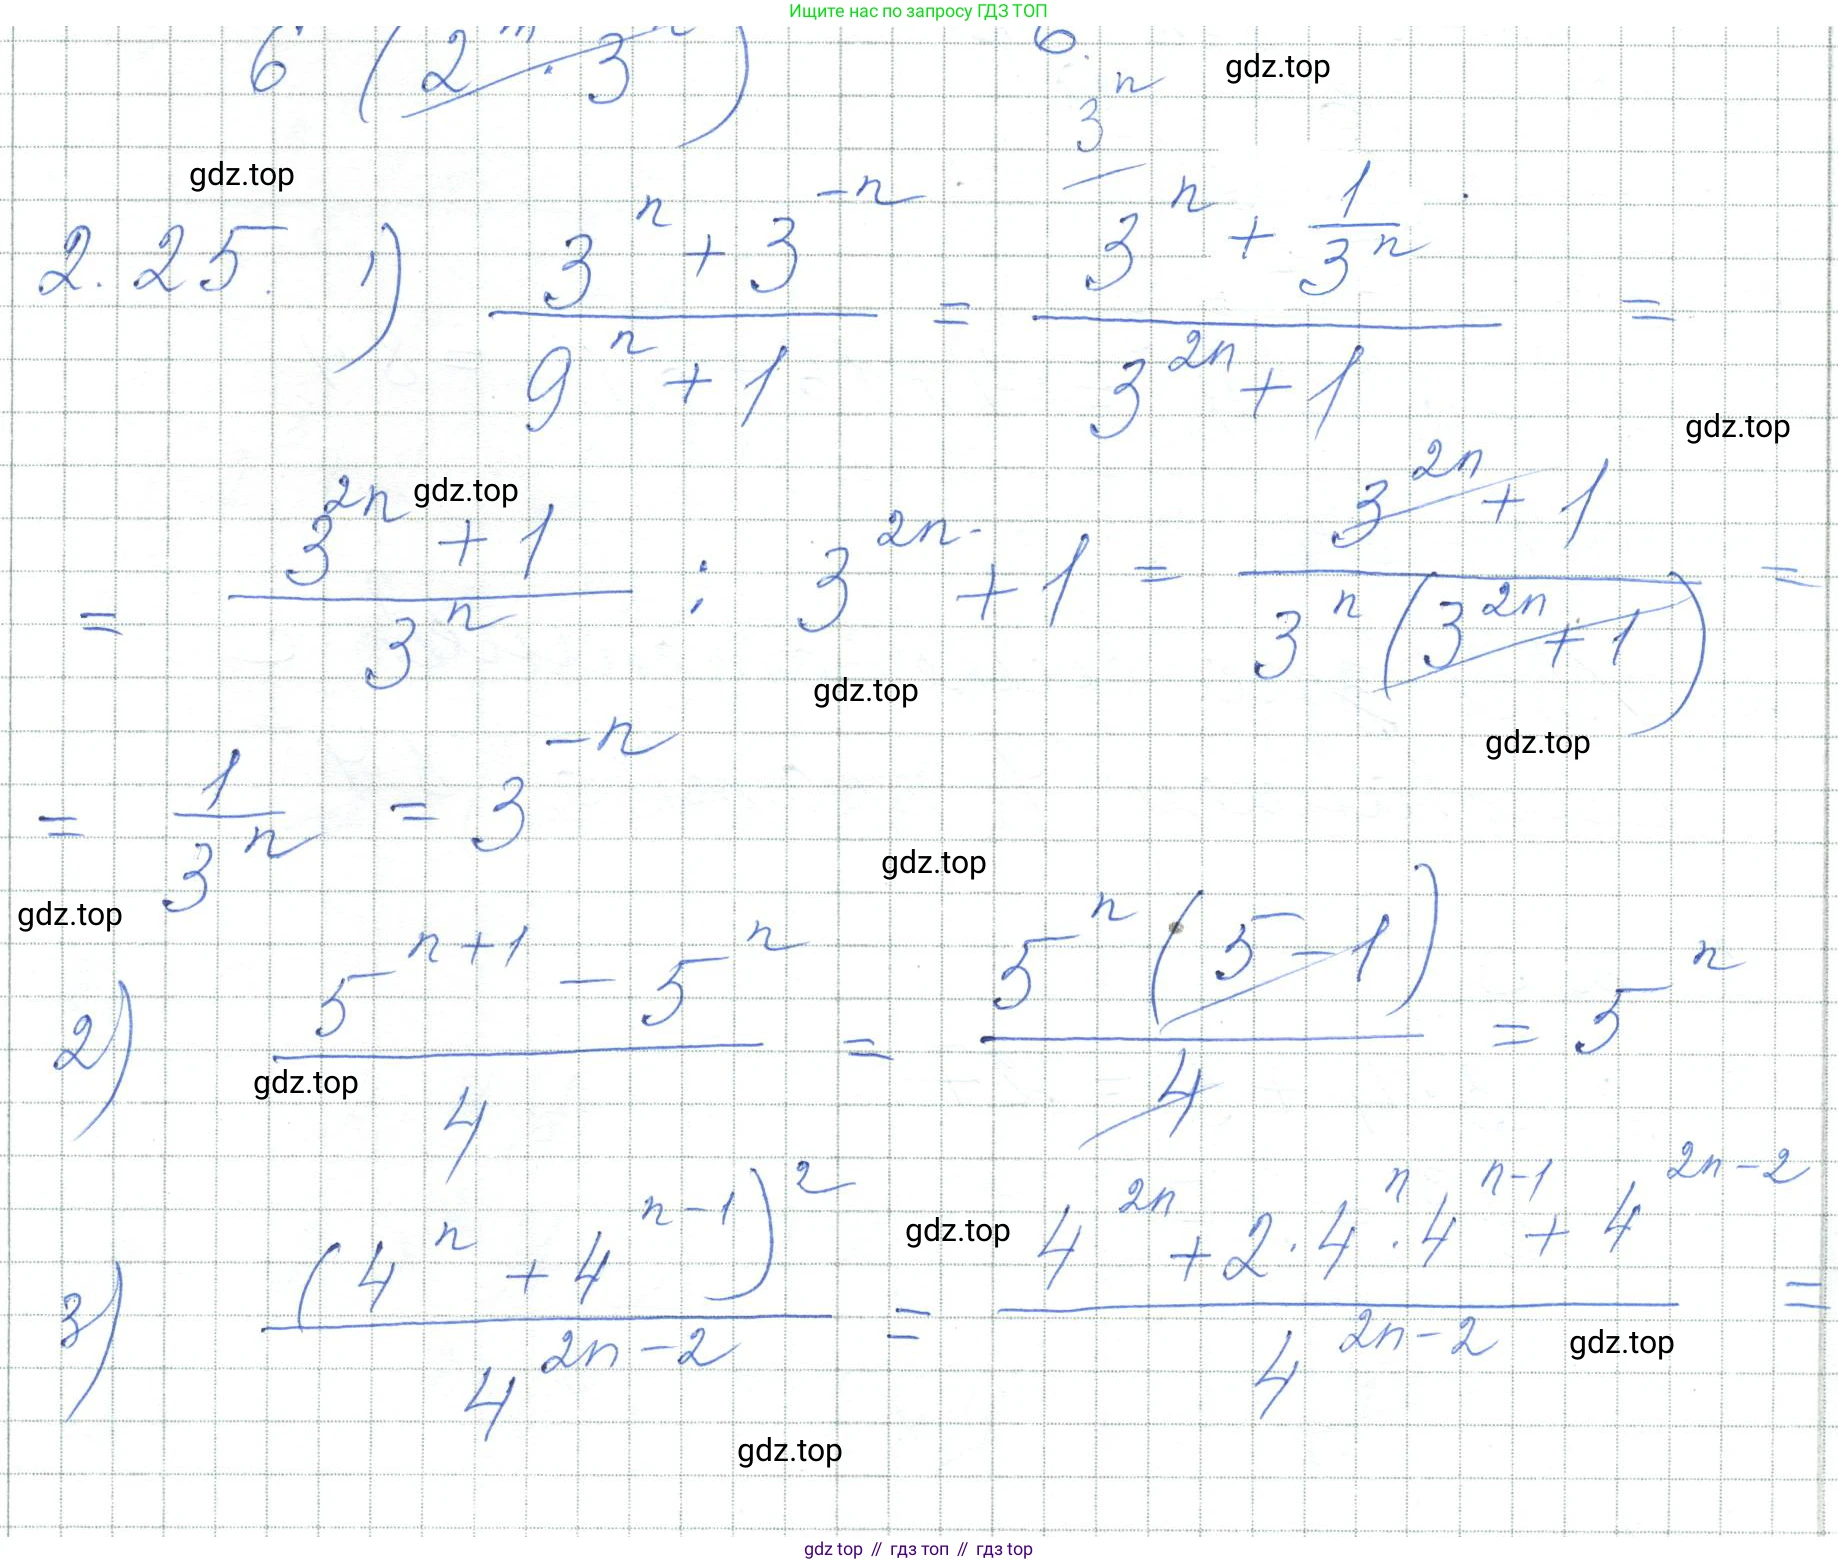 Ищите нас по запросу ГДЗ ТОП
6 (2^m · 3^n) 6.
gdz.top
gdz.top
2.25. 1) (3^n + 3^{-n})/(9^n + 1) = (3^n + 1/3^n)/(3^{2n} + 1) =
3^n
gdz.top
gdz.top
= (3^{2n} + 1)/3^n : 3^{2n} + 1 = (3^{2n} + 1)/(3^n (3^{2n} + 1)) =
gdz.top
gdz.top
= 1/3^n = 3^{-n}
gdz.top
gdz.top
2) (5^{n+1} - 5^n)/4 = (5^n (5 - 1))/4 = 5^n
gdz.top
3) (4^n + 4^{n-1})^2/4^{2n-2} = (4^{2n} + 2 · 4^n · 4^{n-1} + 4^{2n-2})/4^{2n-2} =
gdz.top
gdz.top
gdz.top
gdz top // гдз топ // гдз top